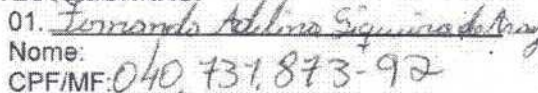 01. Fernando Adelino Siqueira de Araj
Nome:
CPF/MF: 040.737.873-92